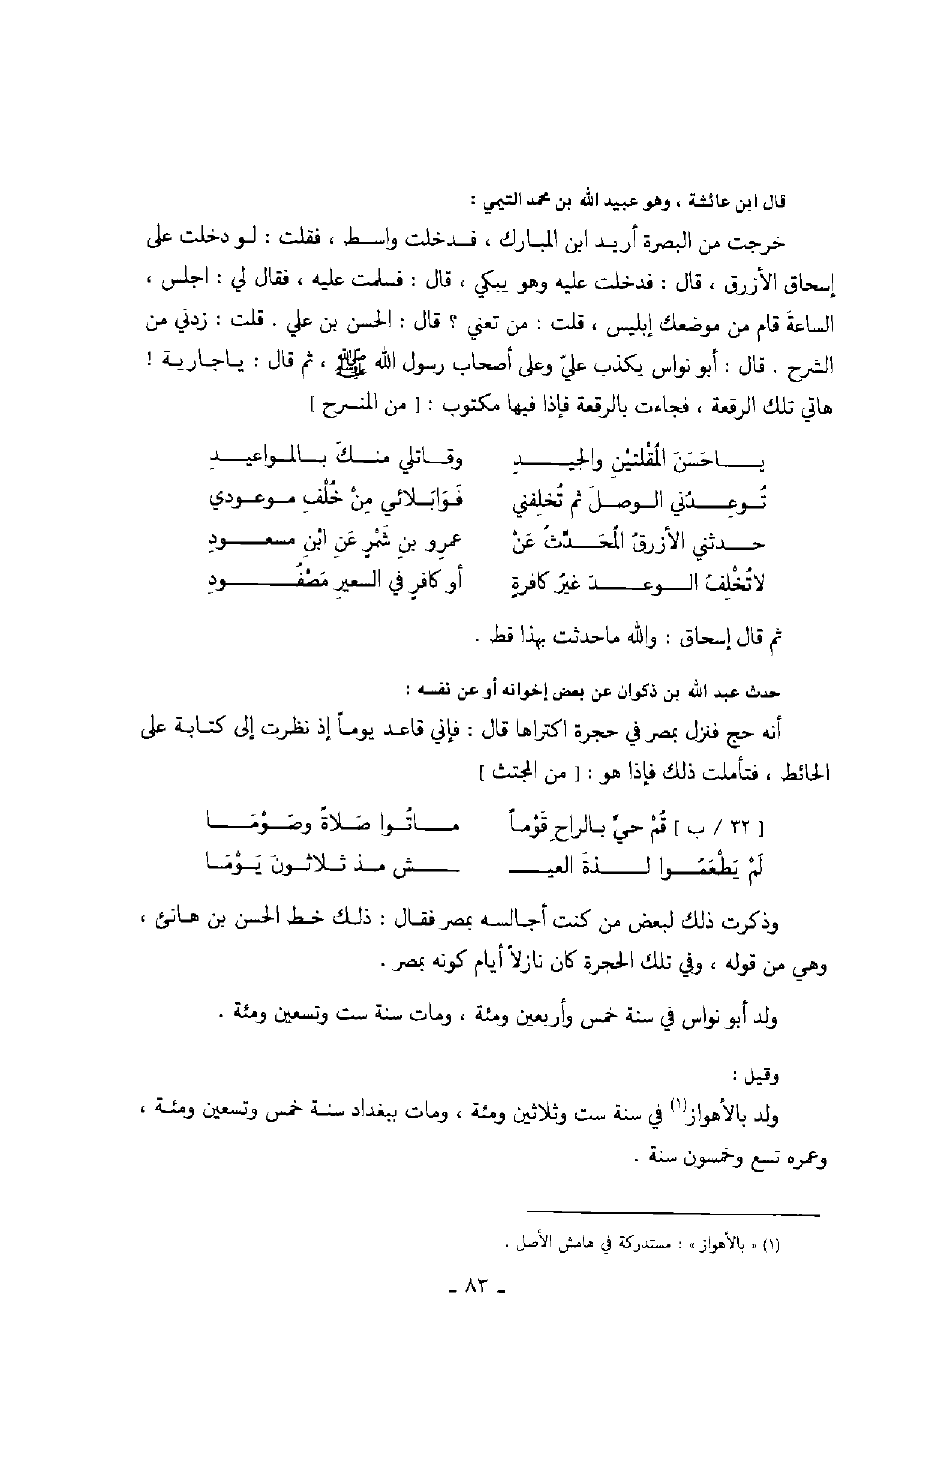 قال ابن عائشة ، وهو عبيد الله بن محمد التيمي :
خرجت من البصرة أريد ابن المبارك ، فدخلت واسط ، فقلت : لو دخلت على
إسحاق الأزرق ، قال : فدخلت عليه وهو يبكي ، قال : فسلمت عليه ، فقال لي : اجلس ،
الساعةَ قام من موضعك إبليس ، قلت : من تعني ؟ قال : الحسن بن علي . قلت : زدني من
الشرح . قال : أبو نواس يكذب عليّ وعلى أصحاب رسول الله ﷺ ، ثم قال : ياجارية !
هاتي تلك الرقعة ، فجاءت بالرقعة فإذا فيها مكتوب : [ من المنسرح ]
ياحَسَنَ المُقْلتيْنِ والجيدِ وقاتلي منكَ بالمواعيدِ
تُوعِدُني الوصلَ ثم تُخلفني فَوَابَلائي مِنْ خُلْفِ موعودي
حدثني الأزرقُ المُحَدّثُ عَنْ عمروِ بنِ شَمْرٍ عَنِ ابْنِ مسعودِ
لاتُخْلِفُ الوعدَ غيرُ كافرةٍ أو كافرٍ في السعيرِ مَصْفُودِ
ثم قال إسحاق : والله ماحدثت بهذا قط .
حدث عبد الله بن ذكوان عن بعض إخوانه أو عن نفسه :
أنه حج فنزل بمصر في حجرة اكتراها قال : فإني قاعد يوماً إذ نظرت إلى كتابة على
الحائط ، فتأملت ذلك فإذا هو : [ من المجتث ]
[ ٢٢ / ب ] قُمْ حيِّ بالراحِ قَوْماً ماتُوا صَلاةً وصَوْمَا
لَمْ يَطْعَمُوا لذةَ العيـ ـش مذ ثلاثونَ يَوْمَا
وذكرت ذلك لبعض من كنت أجالسه بمصر فقال : ذلك خط الحسن بن هانئ ،
وهي من قوله ، وفي تلك الحجرة كان نازلاً أيام كونه بمصر .
ولد أبو نواس في سنة خمس وأربعين ومئة ، ومات سنة ست وتسعين ومئة .
وقيل :
ولد بالأهواز(١) في سنة ست وثلاثين ومئة ، ومات ببغداد سنة خمس وتسعين ومئة ،
وعمره تسع وخمسون سنة .
(١) « بالأهواز » : مستدركة في هامش الأصل .
ـ ٨٣ ـ